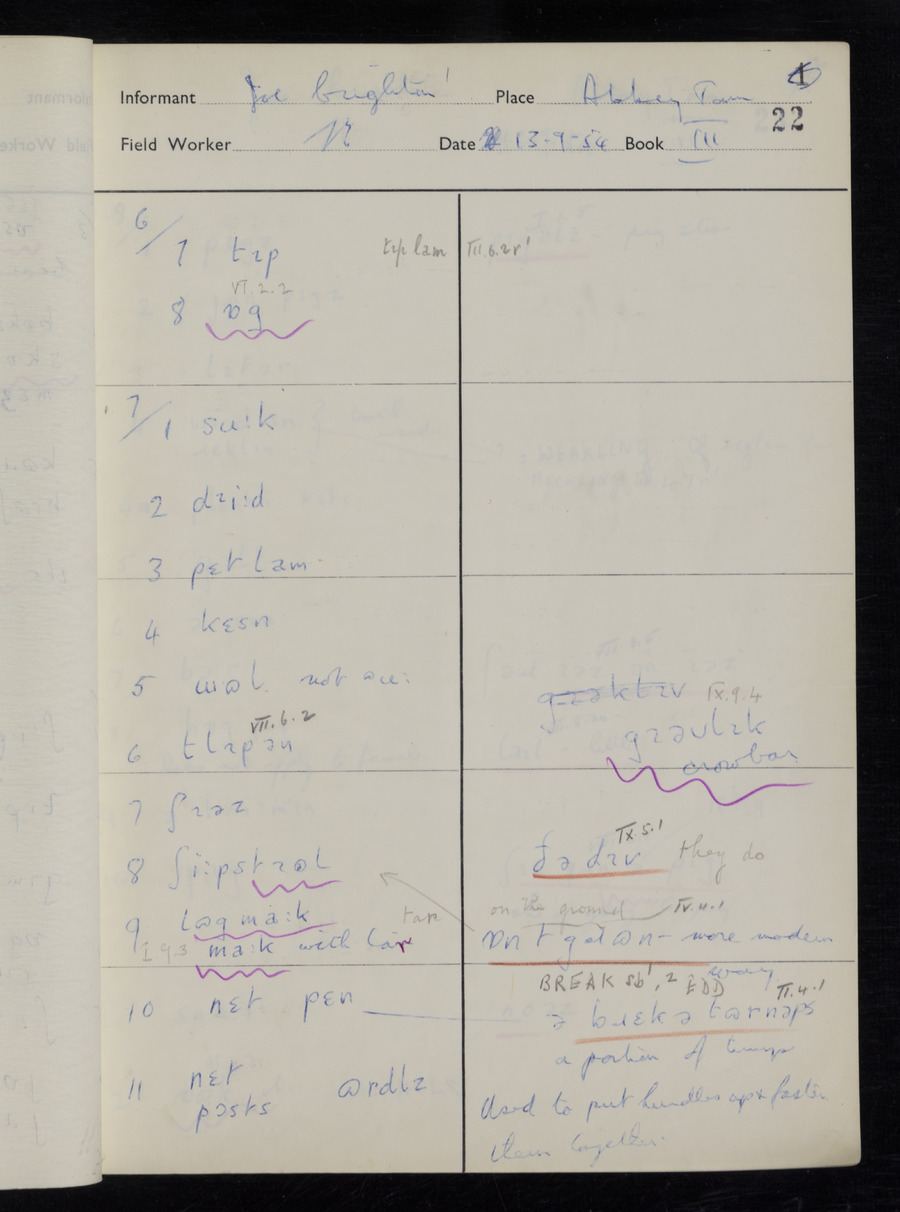 Informant Joe Brighton Place Abbey Town
22
Field Worker Date 13-9-54 Book III
6/
7 tɪp tɪp lam III.6.2r¹
VI.2.2
8 ɒg
7/
1 su:k
2 dɹi:d
3 pɛt lam
4 kɛsn
5 wəl not
VII.6.2
6 tlɪpən
gɹəktɪv IX.9.4
gɹəvlɪk
crowbar
7 ʃɪəz
IX.5.1
8 ʃi:pstɹəl
ðə dɪv they do
9 lɒgma:k tar on the ground IV.4.1
I 93 ma:k with tar ɒn t gəl ɒn - more modern
way
BREAK sb¹, 2 EDD II.4.1
10 nɛt pɛn ə bɹɛk ə tɵrnəps
a portion of turnips
11 nɛt
pɔsts ɵrdlz
Used to put hurdles up & fasten
them together.